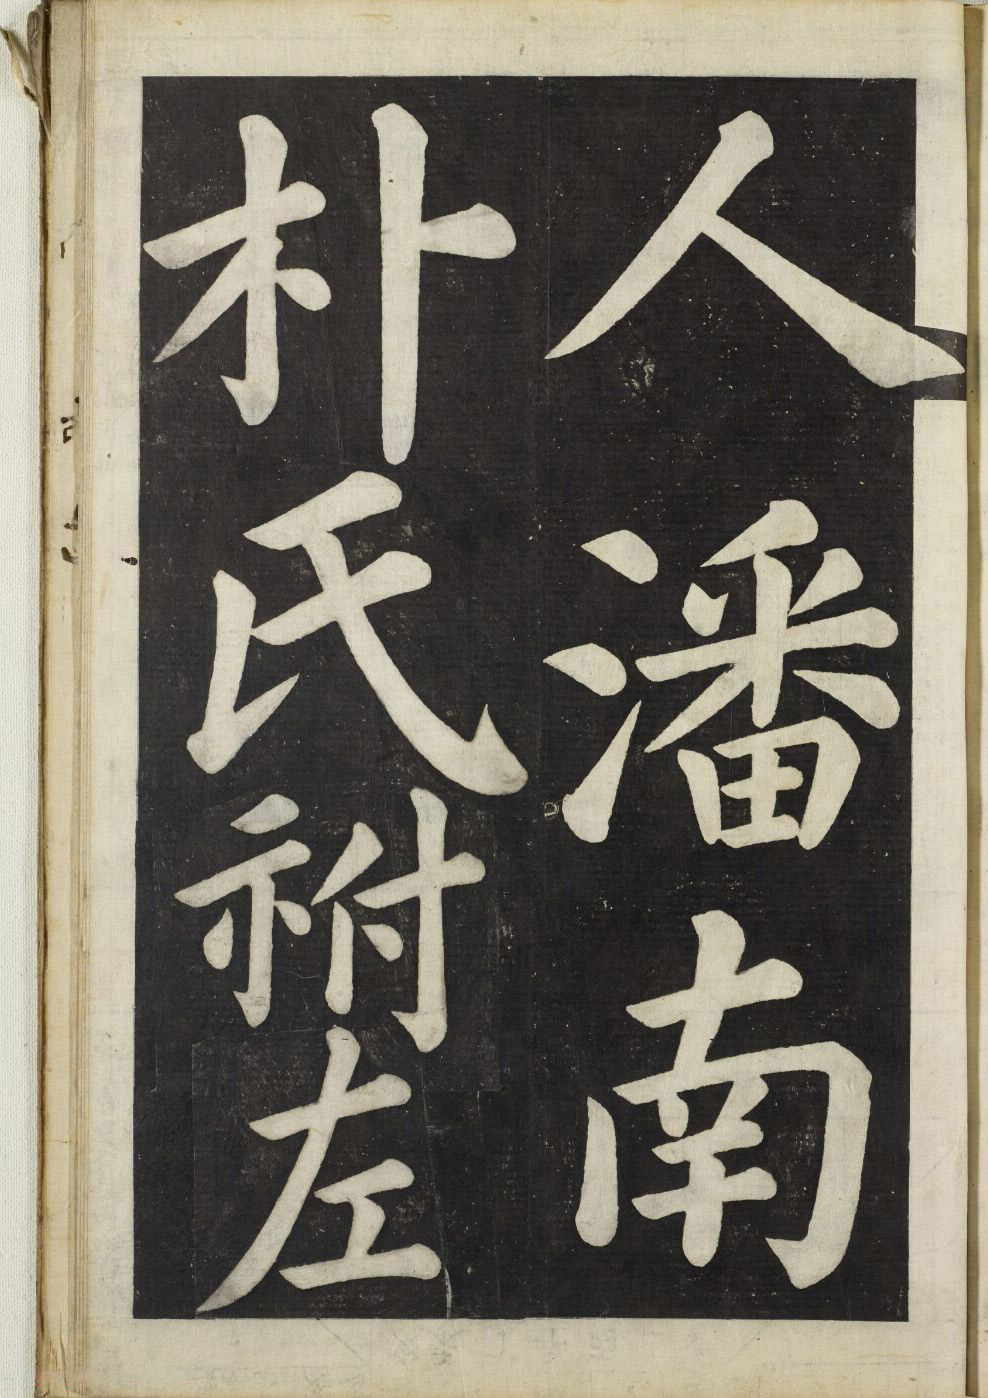 人潘南
朴氏祔左